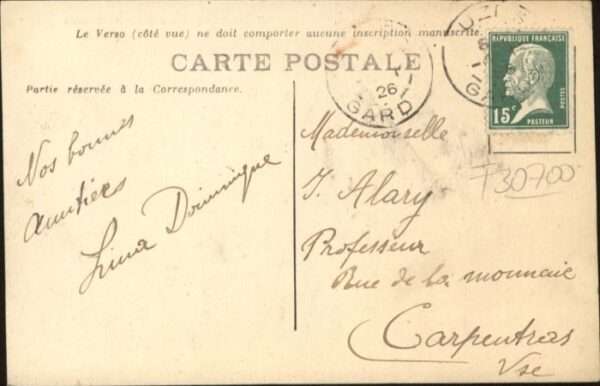 Le Verso (côté vue) ne doit comporter aucune inscription manuscrite.
CARTE POSTALE
Partie réservée à la Correspondance.
26
GARD
GARD
REPUBLIQUE FRANÇAISE
POSTES
15c
PASTEUR
T30700
Nos bonnes
amitiés
Lina Dominique
Mademoiselle
J. Alary
Professeur
Rue de la monnaie
Carpentras
Vse